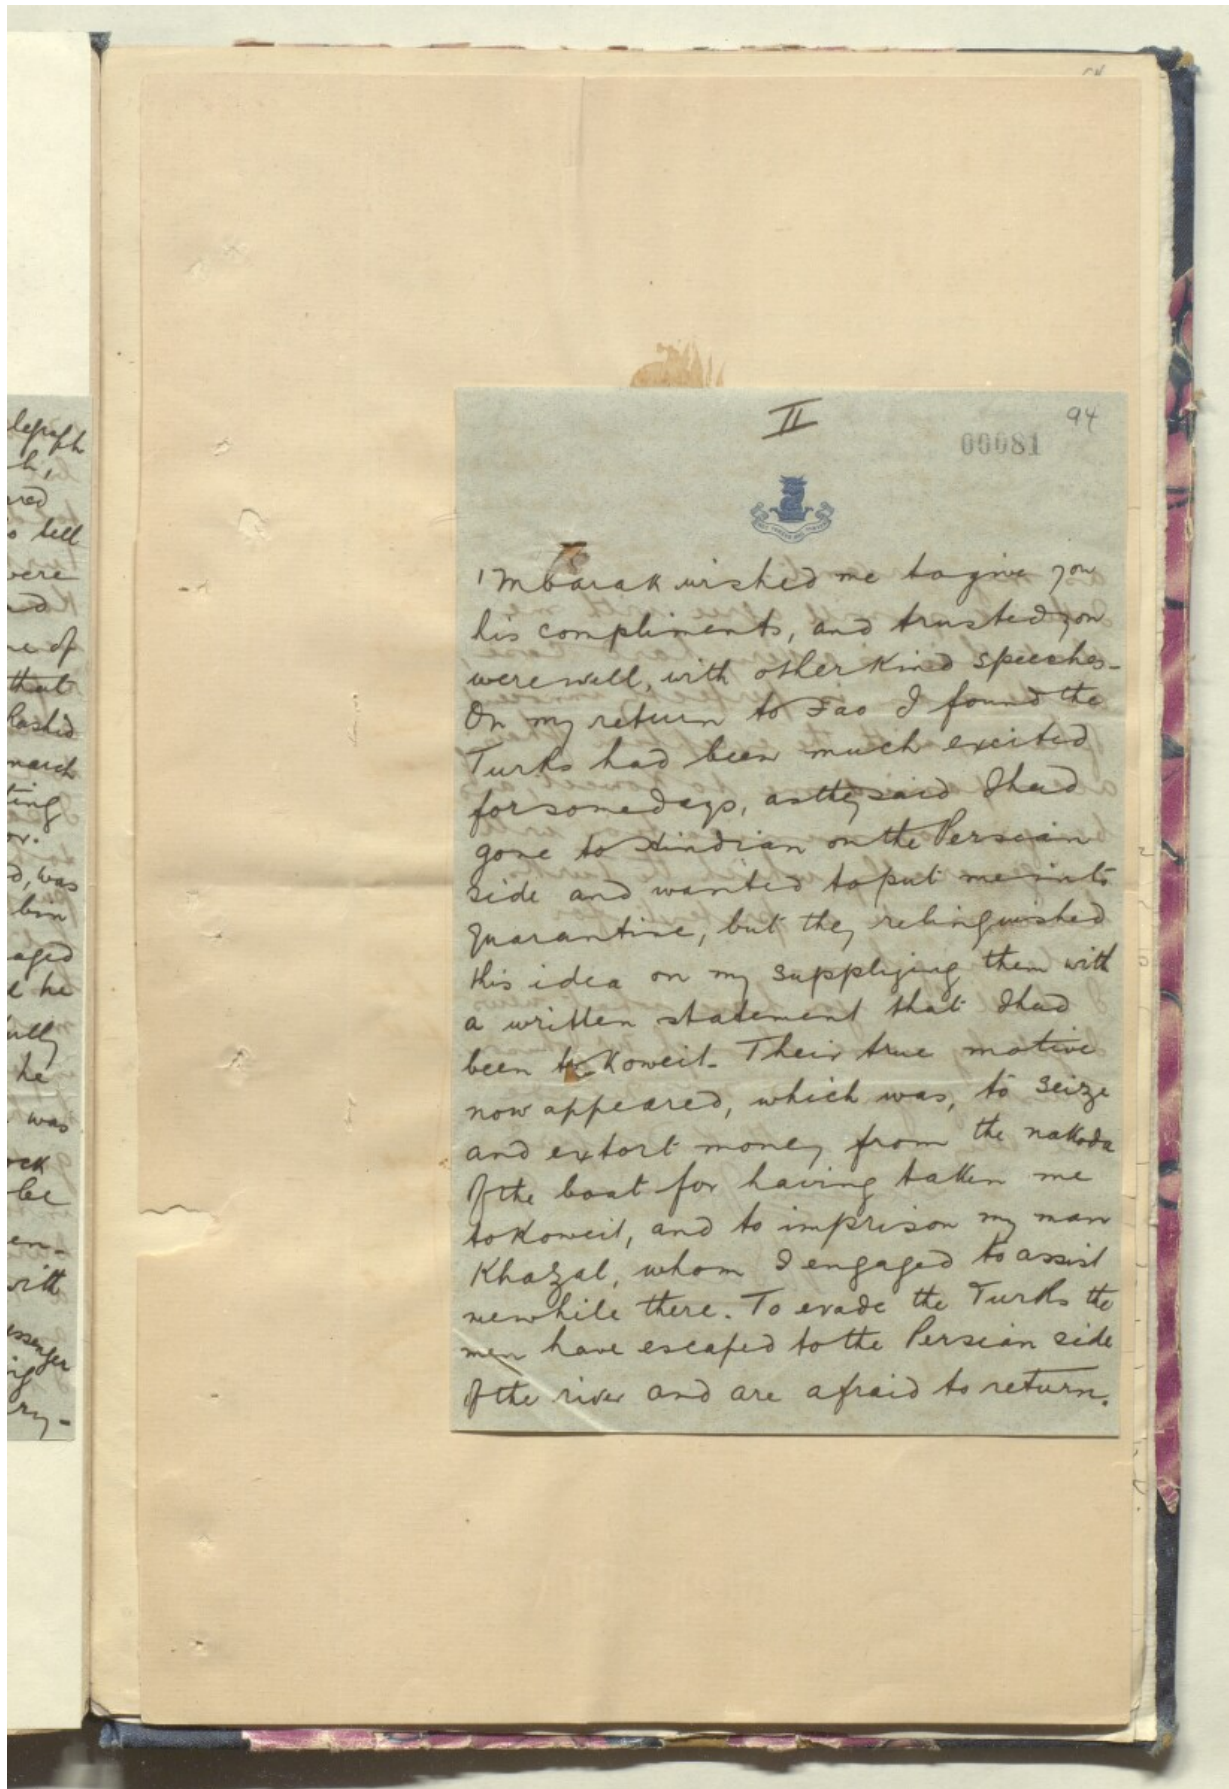 legraph
h,
red
o tell
were
ed
ne of
that
Rashid
march
ting
or.
d, was
bin
aged
e he
ully
he
was
ock
be
en-
with
essenger
ng
ry-
II
94
00081
'Mbarak wished me to give you
his compliments, and trusted you
were well, with other kind speeches-
On my return to Fao I found the
Turks had been much excited
for some days, as they said I had
gone to Hindian on the Persian
side and wanted to put me into
quarantine, but they relinquished
this idea on my supplying them with
a written statement that I had
been to Koweit- Their true motive
now appeared, which was, to seize
and extort money from the nakoda
of the boat for having taken me
to Koweit, and to imprison my man
Khazal, whom I engaged to assist
me while there. To evade the Turks the
men have escaped to the Persian side
of the river and are afraid to return.